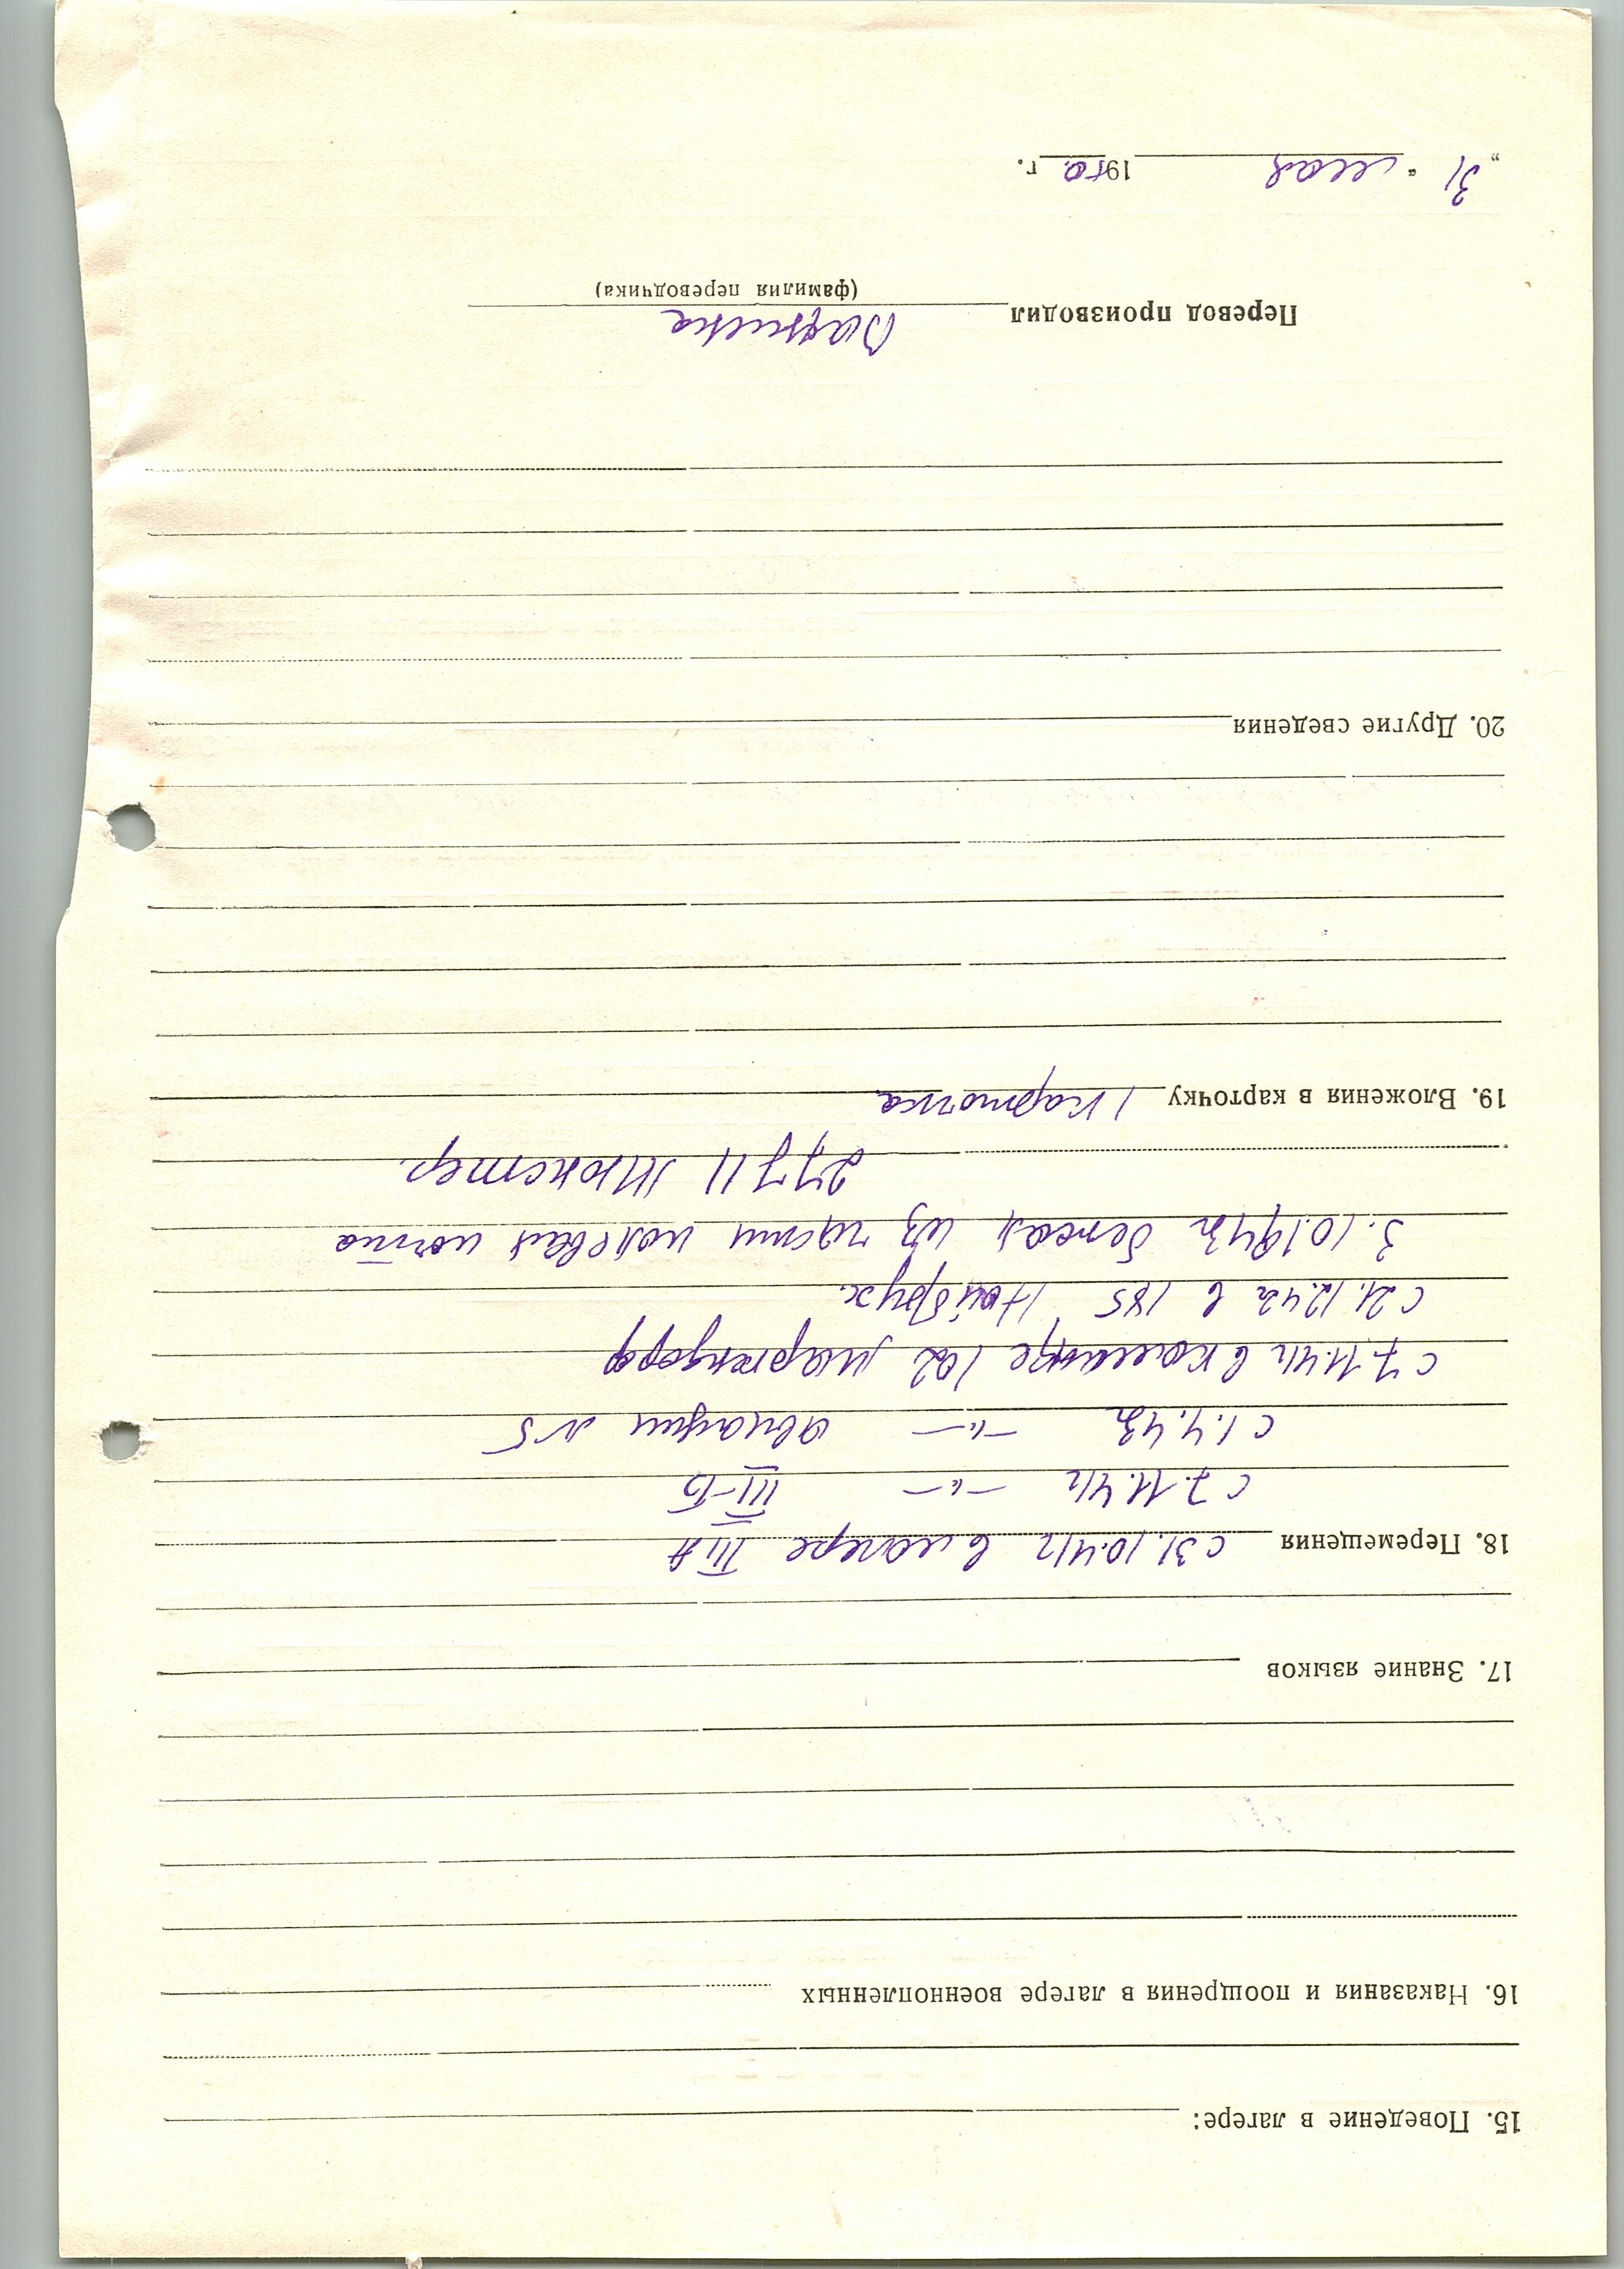 15. Поведение в лагере:
16. Наказания и поощрения в лагере военнопленных
17. Знание языков
18. Перемещения с 31.10.41г в лагере III A
с 7.11.41г —"— III-Б
с 1.4.43г —"— авиации №5
с 7.11.41г в команде 102 Мариендорф
с 21.12.42г в 185 Нойбрух.
3.10.1943г бежал из части полевая почта
27711 Мюнстер.
19. Вложения в карточку 1 карточка
20. Другие сведения
Перевод производил
(фамилия переводчика)
„31“ мая 1950 г.